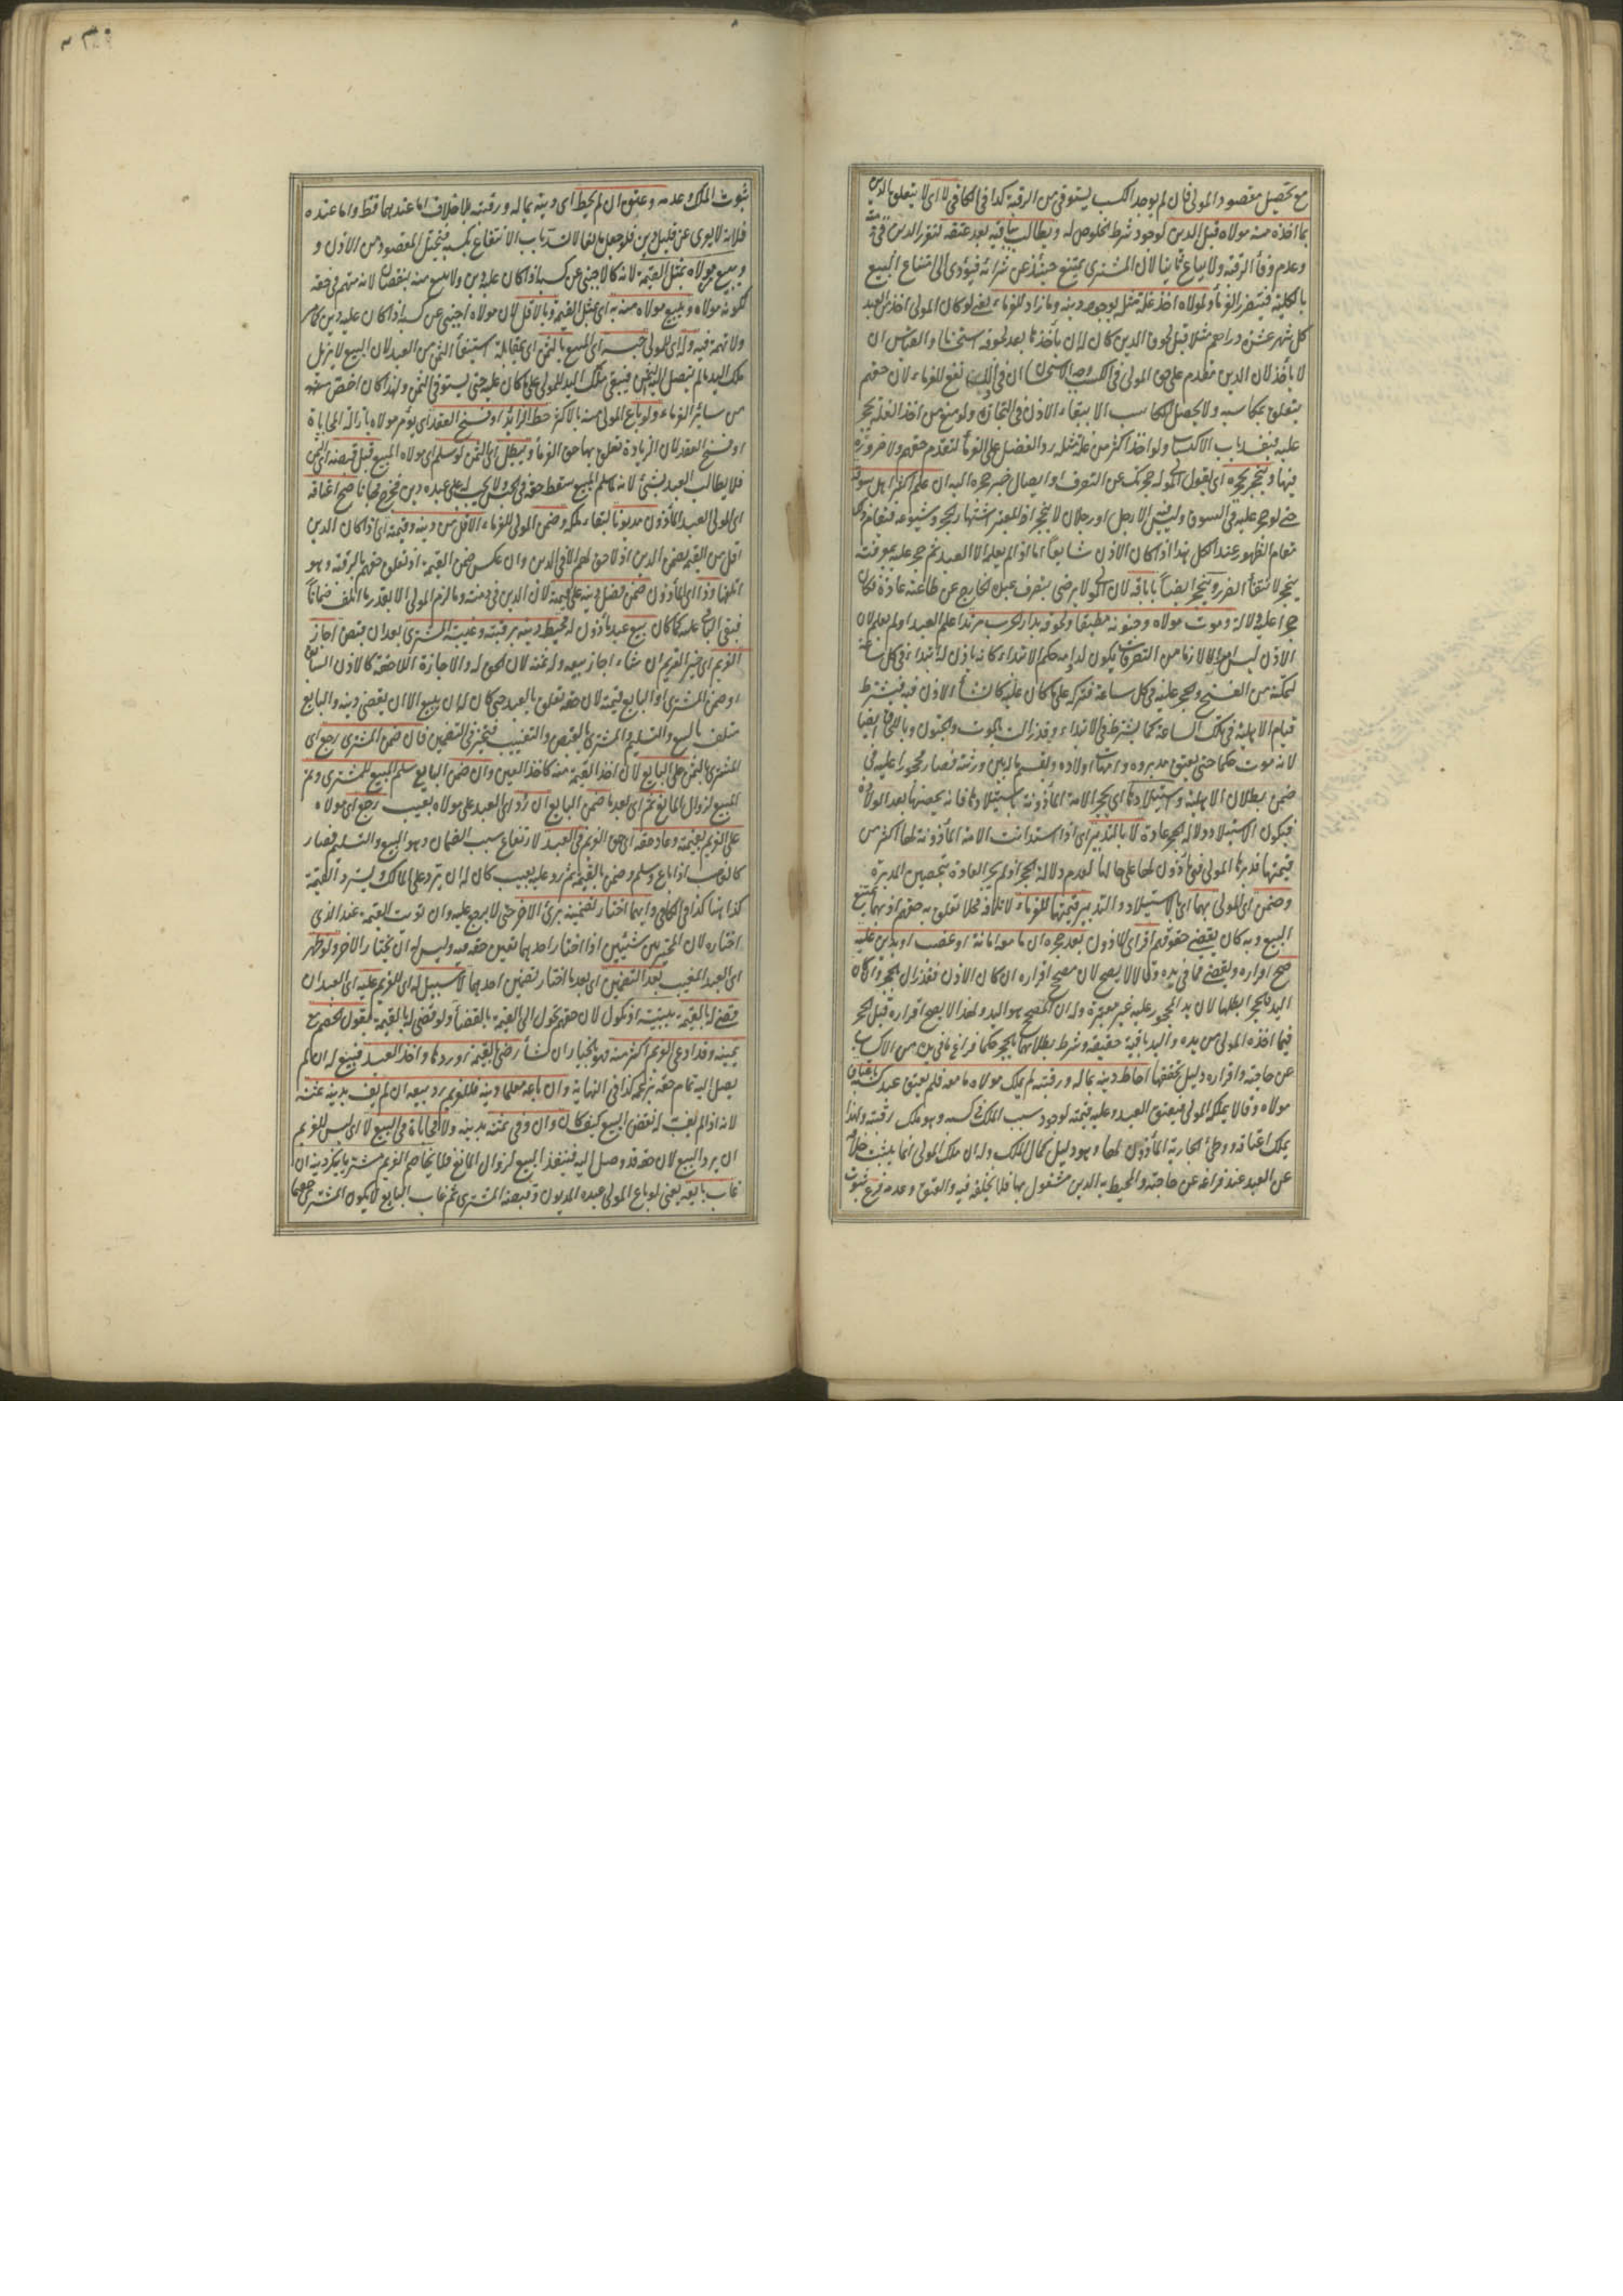 مع تحصيل مقصود المولى فان لم يوجد الكسب يستوفى من الرقبة كذا فى الكافى لا اى لا يتعلق بالدين
بما اخذه منه مولاه قبل الدين لوجود شرط الخلوص له ويطالب بباقيه بعد عتقه لتقرر الدين فى ذمته
وعدم وفاء الرقبة ولا يباع ثانيا لان المشترى يمتنع حينئذ عن شرائه فيؤدى الى امتناع البيع
بالكلية فيتضرر الغرماء ولمولاه اخذ غلة مثله بوجود دينه وما زاد للغرماء يعنى لو كان المولى اخذ من العبد
كل شهر عشرة دراهم مثلا قبل لحوق الدين كان له ان يأخذها بعد لحوقه استحسانا والقياس ان
لا يأخذ لان الدين مقدم على حق المولى فى الكسب وجه الاستحسان ان فى ذلك نفع للغرماء لان حقهم
يتعلق بمكاسبه ولا يحصل المكاسب الا ببقاء الاذن فى التجارة ولو منع من اخذ الغلة يحجر
عليه فينسد باب الاكتساب ولو اخذ اكثر من غلة مثله رد الفضل على الغرماء لتقدم حقهم ولا ضرورة
فيها وينحجر بحجره اى بقول المولى له حجرتك عن التصرف او ايصال خبر حجره اليه ان علم اكثر اهل سوقه
حتى لو حجر عليه فى السوق وليس فيه الا رجل او رجلان لا ينحجر اذ المعتبر اشتهار الحجر وشيوعه فيقام ذلك
مقام الظهور عند الكل هذا اذا كان الاذن شايعا اما اذا لم يعلم الا العبد ثم حجر عليه بمعرفته
ينحجر لانتفاء الضرر وينحجر ايضا باباقه لان المولى لا يرضى بتصرف عبده الخارج عن طاعته عادة فكان
حجرا عليه دلالة وموت مولاه وجنونه مطبقا ولحوقه بدار الحرب مرتدا علم العبد او لم يعلم لان
الاذن ليس امرا لازما من التصرفات يكون لدوامه حكم الابتداء كانه ياذن له ابتداء فى كل ساعة
لتمكنه من الفسخ والحجر عليه فى كل ساعة فتركه على ما كان عليه كانشاء الاذن فيه فيشترط
قيام الاهلية فى تلك الساعة كما يشترط فى الابتداء وقد زالت بالموت والجنون وباللحاق ايضا
لانه موت حكما حتى يعتق مدبروه وامهات اولاده ويقسم ماله بين ورثته فصار محجورا عليه فى
ضمن بطلان الاهلية واستيلادها اى يحجر الامة المأذونة باستيلادها فانه يحصنها بعد الولادة
فيكون الاستيلاد دلالة الحجر عادة لا بالتدبير اى اذا استدانت الامة المأذونة لها اكثر من
قيمتها فدبرها المولى فهى مأذون لها على حالها لعدم دلالة الحجر اذ لم يجر العادة بتحصين المدبرة
وضمن اى المولى بهما اى بالاستيلاد والتدبير قيمتها للغرماء لاتلافه محلا تعلق به حقهم اذ بهما يمتنع
البيع وبه كان يقضى حقوقهم اقر اى الماذون بعد حجره ان ما معه امانة او غصب او بدين عليه
صح اقراره ويقضى مما فى يده وقالا لا يصح لان مصحح اقراره ان كان الاذن فقد زال بالحجر وان كان
اليد فالحجر ابطلها لان يد المحجور عليه غير معتبرة وله ان المصحح هو اليد ولهذا لا يصح اقراره قبل الحجر
فيما اخذه المولى من يده واليد باقية حقيقة وشرط بطلانها بالحجر حكما فراغ ما فى يده من الاكساب
عن حاجته واقراره دليل تحققها احاط دينه بماله ورقبته لم يملك مولاه ما معه فلم يعتق عبد كسبه باعتاق
مولاه وقالا يملكه المولى فيعتق العبد وعليه قيمته لوجود سبب الملك فى كسبه وهو ملك رقبته ولهذا
يملك اعتاقه ووطئ الجارية المأذون لها وهو دليل كمال الملك وله ان ملك المولى انما يثبت خلافة
عن العبد عند فراغه عن حاجته والمحيط به الدين مشغول بها فلا يخلفه فيه والعتق وعدمه فرع ثبوت
ثبوت الملك وعدمه وعتق ان لم يحط اى دينه بماله ورقبته بلا خلاف اما عندهما فظ واما عنده
فلانه لا يعرى عن قليل دين فلو جعل مانعا لانسد باب الانتفاع بكسبه فيختل المقصود من الاذن و
ويبيع من مولاه بمثل القيمة لانه كالاجنبى عن كسبه اذا كان عليه دين ولا يبيع منه بنقصان لانه متهم فى حقه
لكونه مولاه ويبيع مولاه منه به اى بمثل القيمة وبالاقل لان مولاه اجنبى عن كسبه اذا كان عليه دين كما مر
ولا تهمة فيه وله اى للمولى حبسه اى المبيع بالثمن اى بمقابلة استيفاء الثمن من العبد لان البيع لا يزيل
ملك اليد ما لم يتصل اليه الثمن فيبقى ملك اليد للمولى على ما كان عليه حتى يستوفى الثمن ولهذا كان اخص به
من سائر الغرماء ولو باع المولى منه بالاكثر حط الزائد او فسخ العقد اى يؤمر مولاه بازالة المحاباة
او فسخ العقد لان الزيادة تعلق بها حق الغرماء ويبطل اى الثمن لو سلم اى مولاه المبيع قبل قبضه اى الثمن
فلا يطالب العبد بشئ لانه بتسليم المبيع سقط حقه فى الحبس ولا يجب له على عبده دين فخرج مجانا صح اعتاقه
اى المولى العبد المأذون مديونا لبقاء ملكه وضمن المولى للغرماء الاقل من دينه وقيمته اى اذا كان الدين
اقل من القيمة يضمن الدين اذ لا حق لهم الا فى الدين وان عكس ضمن القيمة اذ تعلق حقهم بالرقبة وهو
اتلفها وذا اى المأذون ضمن فضل دينه على قيمته لان الدين فى ذمته وما لزم المولى الا بقدر ما اتلف ضمانا
فبقى الباقى عليه كما كان بيع عبد مأذون له محيط دينه برقبته وغيبه المشترى بعد ان قبض اجاز
الغريم اى خير الغريم ان شاء اجاز بيعه وله ثمنه لان الحق له والاجازة اللاحقة كالاذن السابق
او ضمن المشترى او البايع قيمته لان حقه تعلق بالعبد حتى كان له ان يبيع الا ان يقضى دينه والبايع
متلف بالبيع والتسليم والمشترى بالقبض والتغييب فيخير فى التضمين فان ضمن المشترى رجع اى
المشترى بالثمن على البايع لان اخذ القيمة منه كاخذ العين وان ضمن البايع سلم المبيع للمشترى وتم
المبيع لزوال المانع ثم اى بعد ما ضمن البايع ان رد اى العبد على مولاه بعيب رجع اى مولاه
على الغريم بقيمته وعاد حقه اى حق الغريم فى العبد لارتفاع سبب الضمان وهو البيع والتسليم فصار
كالغاصب اذا باع وسلم وضمن بالقيمة ثم رد عليه بعيب كان له ان يرد على المالك ويسترد القيمة
كذا هنا كذا فى الكافى وايهما اختار تضمينه برئ الاخر حتى لا يرجع عليه وان تويت القيمة عند الذى
اختاره لان المخير بين شيئين اذا اختار احدهما تعين حقه فيه وليس له ان يختار الاخر ولو ظهر
اى العبد المغيب بعد التضمين اى بعد ما اختار تضمين احدهما لا سبيل له اى للغريم عليه اى العبد ان
قضى له بالقيمة ببينة او نكول لان حقهم تحول الى القيمة بالقضاء ولو قضى له بالقيمة بقول الخصم مع
يمينه وقد ادعى الغريم اكثر منه فهو بالخيار ان شاء رضى بالقيمة او ردها واخذ العبد فيبيع له ان لم
يصل اليه تمام حقه بزعمه كذا فى النهاية وان باعه معلما دينه فللغريم رد بيعه ان لم يف بدينه ثمنه
لانه اذا لم يف له نقض البيع كيفما كان وان وفى ثمنه بدينه ولا محاباة فى البيع لا اى ليس للغريم
ان يرد البيع لان حقه قد وصل اليه فينفذ البيع لزوال المانع فلا يخاصم الغريم مشتريا ينكر دينه ان
غاب بايعه يعنى لو باع المولى عبده المديون وقبضه المشترى ثم غاب البايع لا يكون المشترى خصما